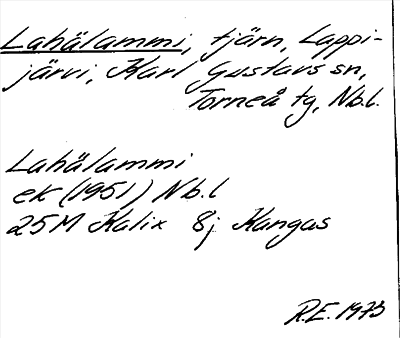 Lahälammi, tjärn, Lappi-
järvi, Karl Gustavs sn,
Torneå tg, Nb.l.
Lahälammi
ek (1951) Nb.l
25M Kalix 8j Kangas
R.E. 1973